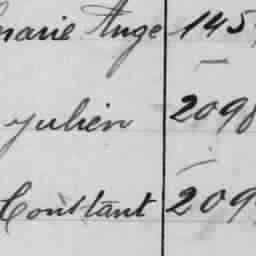 marie Ange 145
Julien 2098
Constant 209